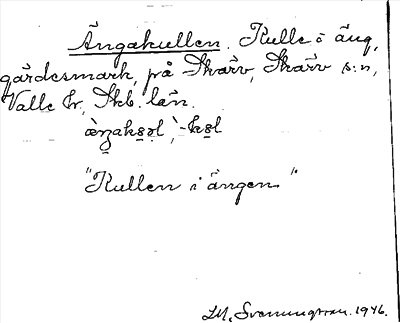 Ängakullen. Kulle i äng,
gärdesmark, på Skärv, Skärv s:n,
Valle hr, Skb. län.
"Kullen i ängen"
M. Svenungsson. 1946.